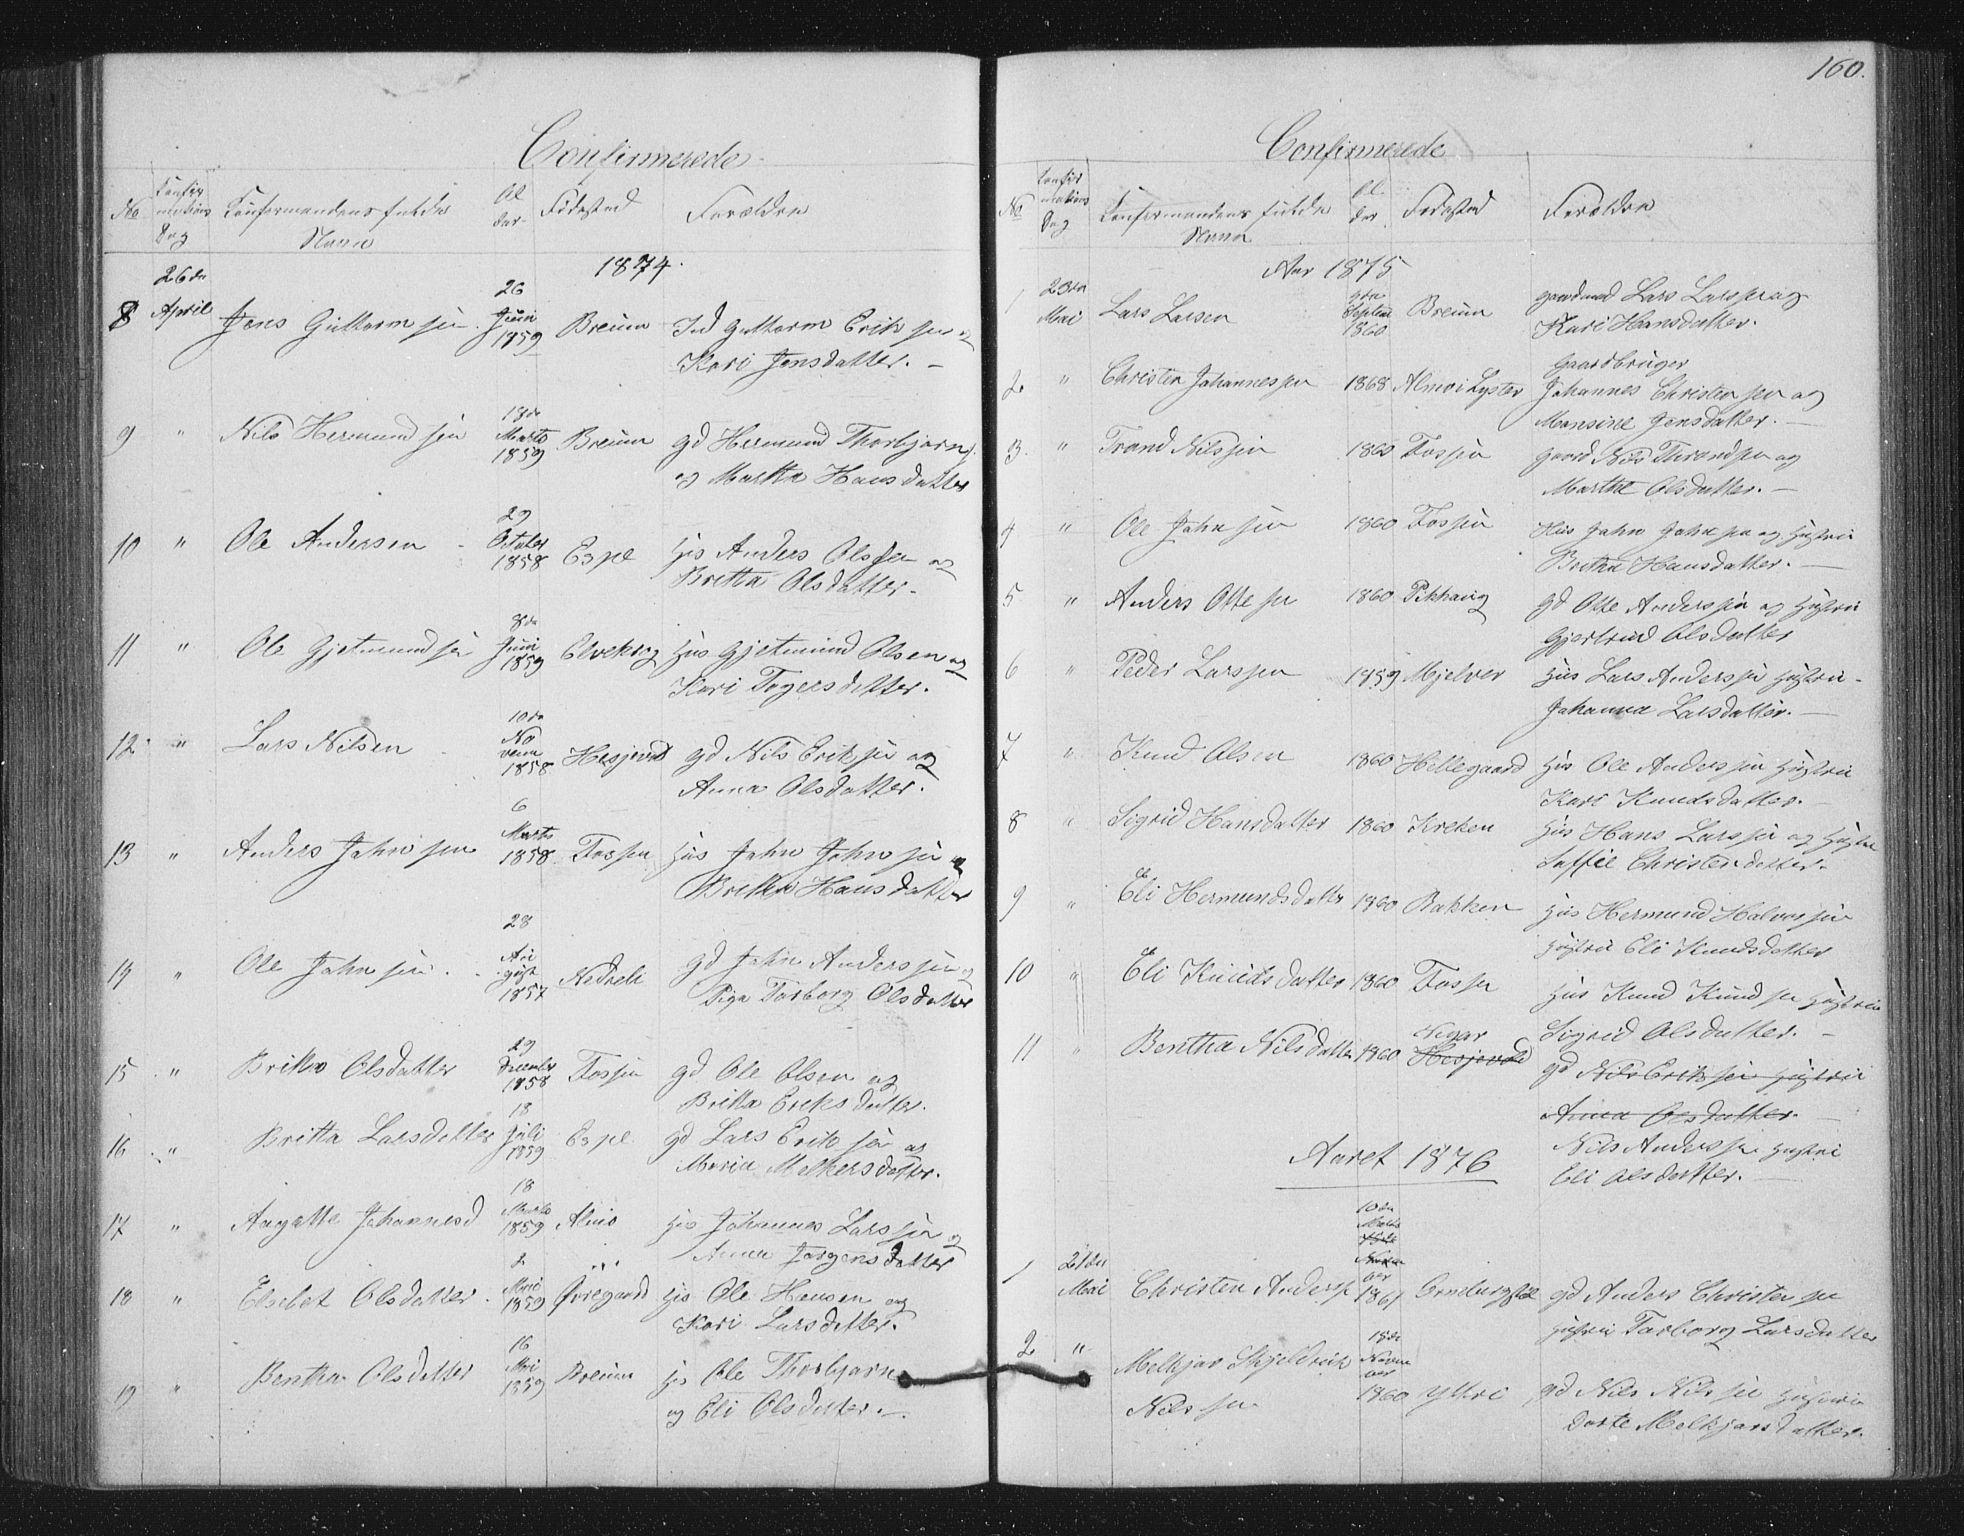 Confirmerede
No Konfirmations Dag Konfirmandens fulde Navn Alder Fødested Forældre
1874.
8 26de April Jens Guttormsen 26 Juni 1859 Breum Ind Guttorm Eriksen og
Kari Jensdatter. –
9 " Nils Hermundsen 18de Marts 1859 Breum gd Hermund Thorbjørns.
og Martha Hansdatter
10 " Ole Andersen 29 Octuber 1858 Espe Hus Anders Olsen og
Britha Olsdatter.
11 " Ole Gjetmundsen 8de Juni 1859 Elvekrog Hus Gjetmund Olsen og
Kari Togersdatter.
12. " Lars Nilsen 10de Novem 1858 Hesjevold gd Nils Eriksen og
Anna Olsdatter.
13 " Anders Johnsen 6 Marts 1858 Fossen Hus John Johnsen og
Britha Hansdatter
14 " Ole Johnsen 28 August 1857 Nedreli gd John Anderssen og
Pige Torborg Olsdatter
15 " Britha Olsdatter 29 December 1858 Fossen gd Ole Olsen og
Britta Eriksdatter.
16 " Britta Larsdatter 18 Juli 1859 Espe gd Lars Eriksen og
Maria Melkersdatter.
17 " Aagatte Johannesd 18 Marts 1859 Almo Hus Johannes Larssen og
Anna Jørgensdatter
18 " Elsebet Olsdatter 2 Mai 1859 Øvregaard Hus Ole Hansen og
Kari Larsdatter.
19 " Bentha Olsdatter 16 Mai 1859 Breum Hus Ole Thorbjørns
og Eli Olsdatter. –
160.
Confirmerede
No Konfirmations Dag Konfirmandens fulde Navn Alder Fødested Forældre
Aar 1875
1 23de Mai Lars Larsen 9de Septem 1860 Breum gaardmd Lars Larssen og
Kari Hansdatter.
2 " Christen Johannessen 1868 Almoi Lyster Gaardbruger
Johannes Christensen og
Mansine Jensdatter. –
3. " Trond Nilssen 1860 Fossen gaard Nils Throndsen og
Marthe Olsdatter. –
4 " Ole Johnsen 1860 Fossen Hus John Johnsen og Hustrue
Britha Hansdatter. –
5 " Anders Ottesen 1860 Pikhaug gd Otte Anderssen og Hustrue
Gjertrud Olsdatter
6 " Peder Larssen 1859 Mjelver Hus Lars Anderssen Hustrue
Johanna Larsdatter. –
7 " Knud Olsen 1860 Hellegaard Hus Ole Anderssen Hustrue
Kari Knudsdatter. –
8 " Sigrid Hansdatter 1860 Kreken Hus Hans Larssen og Hustrue
Soffie Christensdatter.
9 " Eli Hermundsdatter 1860 Bakken Hus Hermund Halvorssen
Hustrue Eli Knudsdatter
10 " Eli Knudsdatter 1860 Fossen Hus Knud Knudsen Hustrue
Sigrid Olsdatter. –
11 " Bentha Nilsdatter 1860 Hesjevold gd Nils Eriksen Hustrue
Anna Olsdatter. –
Nils Anderssen Hustrue
Eli Olsdatter. –
Aaret 1876
1 21de Mai Christen Anders. 10de Marts 1861 gd Anders Christensen
Hustrue Torborg Larsdatter
2 " Melkjor Skjeldrik 18de Novem ber 1860 Ytri gd Nils Nilssen Hustrue
Nilssen Dorte Melkjorsdatter.